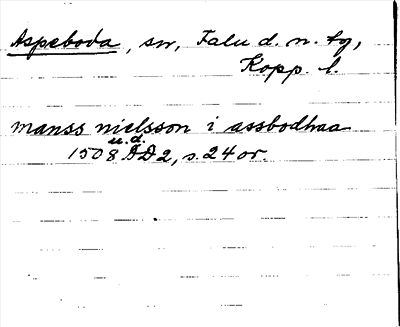 Aspeboda, sn, Falu d. n. tg,
Kopp. l.
manss nielsson i assbodhaa
u. d.
1508 ÄD 2, s. 24 or.